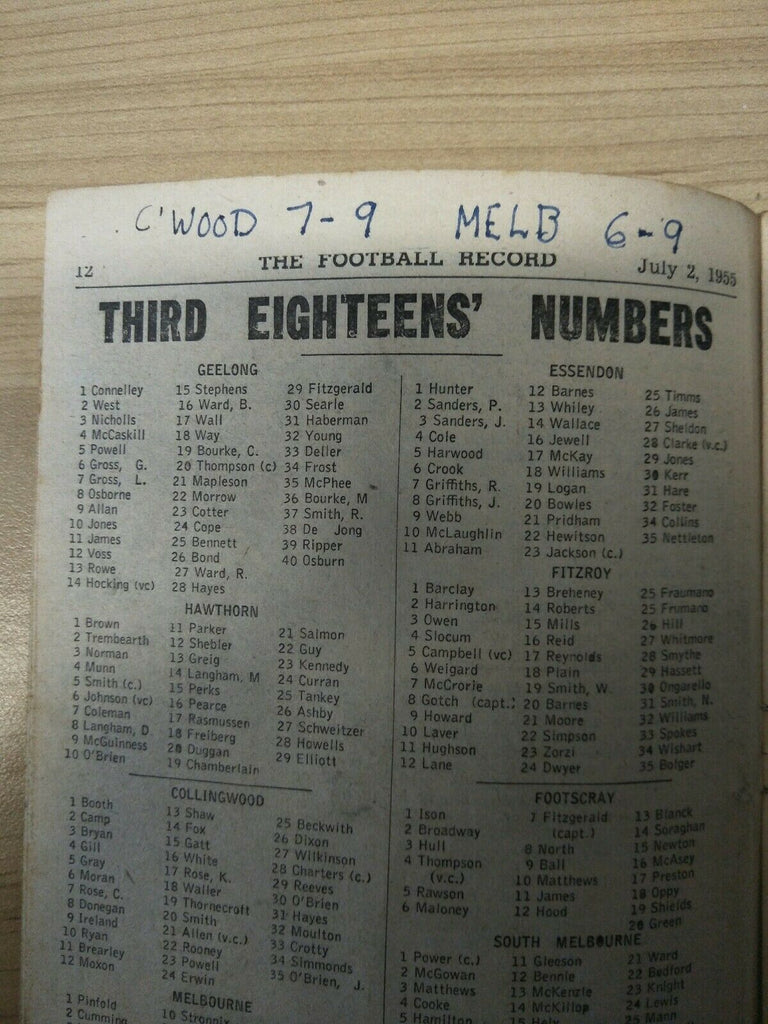 C'WOOD 7-9 MELB 6-9
12 THE FOOTBALL RECORD July 2, 1955
THIRD EIGHTEENS' NUMBERS
GEELONG
1 Connelley
2 West
3 Nicholls
4 McCaskill
5 Powell
6 Gross, G.
7 Gross, L.
8 Osborne
9 Allan
10 Jones
11 James
12 Voss
13 Rowe
14 Hocking (vc)
15 Stephens
16 Ward, B.
17 Wall
18 Way
19 Bourke, C.
20 Thompson (c)
21 Mapleson
22 Morrow
23 Cotter
24 Cope
25 Bennett
26 Bond
27 Ward, R.
28 Hayes
29 Fitzgerald
30 Searle
31 Haberman
32 Young
33 Deller
34 Frost
35 McPhee
36 Bourke, M
37 Smith, R.
38 De Jong
39 Ripper
40 Osburn
HAWTHORN
1 Brown
2 Trembearth
3 Norman
4 Munn
5 Smith (c.)
6 Johnson (vc)
7 Coleman
8 Langham, D
9 McGuinness
10 O'Brien
11 Parker
12 Shebler
13 Greig
14 Langham, M
15 Perks
16 Pearce
17 Rasmussen
18 Freiberg
20 Duggan
19 Chamberlain
21 Salmon
22 Guy
23 Kennedy
24 Curran
25 Tankey
26 Ashby
27 Schweitzer
28 Howells
29 Elliott
COLLINGWOOD
1 Booth
2 Camp
3 Bryan
4 Gill
5 Gray
6 Moran
7 Rose, C.
8 Donegan
9 Ireland
10 Ryan
11 Brearley
12 Moxon
13 Shaw
14 Fox
15 Gatt
16 White
17 Rose, K.
18 Waller
19 Thornecroft
20 Smith
21 Allen (v.c.)
22 Rooney
23 Powell
24 Erwin
25 Beckwith
26 Dixon
27 Wilkinson
28 Charters (c.)
29 Reeves
30 O'Brien
31 Hayes
32 Moulton
33 Crotty
34 Simmonds
35 O'Brien, J.
MELBOURNE
1 Pinfold
2 Cumming
10 Stronnix
ESSENDON
1 Hunter
2 Sanders, P.
3 Sanders, J.
4 Cole
5 Harwood
6 Crook
7 Griffiths, R.
8 Griffiths, J.
9 Webb
10 McLaughlin
11 Abraham
12 Barnes
13 Whiley
14 Wallace
16 Jewell
17 McKay
18 Williams
19 Logan
20 Bowles
21 Pridham
22 Hewitson
23 Jackson (c.)
25 Timms
26 James
27 Sheldon
28 Clarke (v.c.)
29 Jones
30 Kerr
31 Hare
32 Foster
34 Collins
35 Nettleton
FITZROY
1 Barclay
2 Harrington
3 Owen
4 Slocum
5 Campbell (vc)
6 Weigard
7 McCrorie
8 Gotch (capt.)
9 Howard
10 Laver
11 Hughson
12 Lane
13 Breheney
14 Roberts
15 Mills
16 Reid
17 Reynolds
18 Plain
19 Smith, W.
20 Barnes
21 Moore
22 Simpson
23 Zorzi
24 Dwyer
25 Fraumano
25 Frumano
26 Hill
27 Whitmore
28 Smythe
29 Hassett
30 Ongarello
31 Smith, N.
32 Williams
33 Spokes
34 Wishart
35 Bolger
FOOTSCRAY
1 Ison
2 Broadway
3 Hull
4 Thompson
(v.c.)
5 Rawson
6 Maloney
7 Fitzgerald
(capt.)
8 North
9 Ball
10 Matthews
11 James
12 Hood
13 Blanck
14 Soraghan
15 Newton
16 McAsey
17 Preston
18 Oppy
19 Shields
20 Green
SOUTH MELBOURNE
1 Power (c.)
2 McGowan
3 Matthews
4 Cooke
5 Hamilton
11 Gleeson
12 Bennie
13 McKenzie
14 McKillop
15 Hely
21 Ward
22 Bedford
23 Knight
24 Lewis
25 Mann